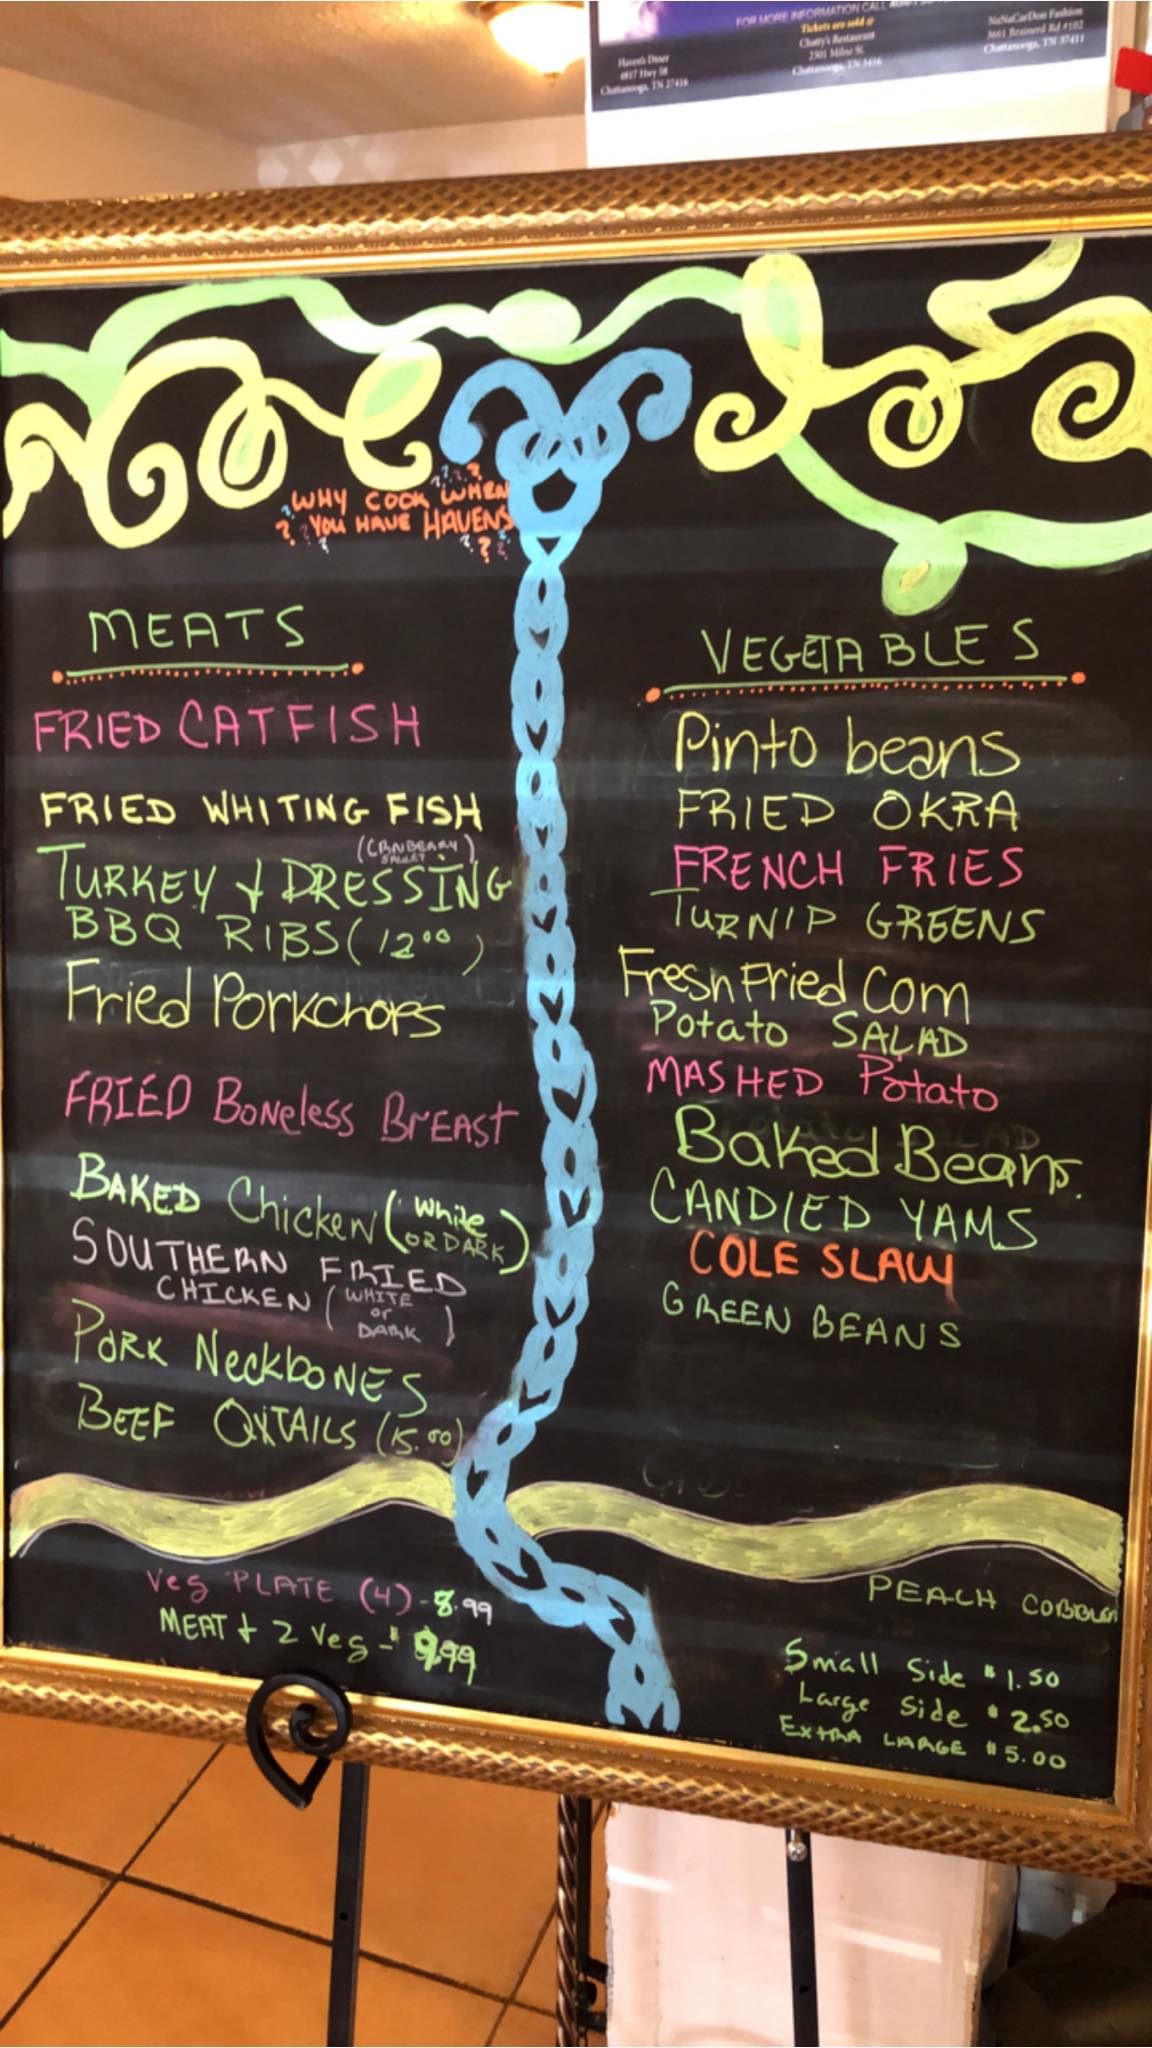 FOR MORE INFORMATION CALL
Tickets are sold @
Chatty's Restaurant
2301 Milne St.
Chattanooga, TN 3416
Haven's Diner
4817 Hwy 58
Chattanooga, TN 37416
NaNaCarDon Fashion
3661 Brainerd Rd #102
Chattanooga, TN 37411
WHY COOK WHEN
YOU HAVE HAVENS
MEATS
FRIED CATFISH
FRIED WHITING FISH
(CRNBEARY
TURKEY & DRESSING
BBQ RIBS (12⁰⁰)
Fried Porkchops
FRIED Boneless BreAST
BAKED Chicken (White
OR DARK)
SOUTHERN FRIED
CHICKEN (WHITE
or
DARK)
PORK NeckboNES
BEEF OXTAILS (15.00)
VEGETABLES
Pinto beans
FRIED OKRA
FRENCH FRIES
TURNIP GREENS
Fresh Fried Corn
Potato SALAD
MASHED Potato
Baked Beans.
CANDIED YAMS
COLE SLAW
GREEN BEANS
Veg PLATE (4) - 8.99
MEAT + 2 Veg - $ 9.99
PEACH COBBLER
Small Side $1.50
Large Side $2.50
EXTRA LARGE $5.00